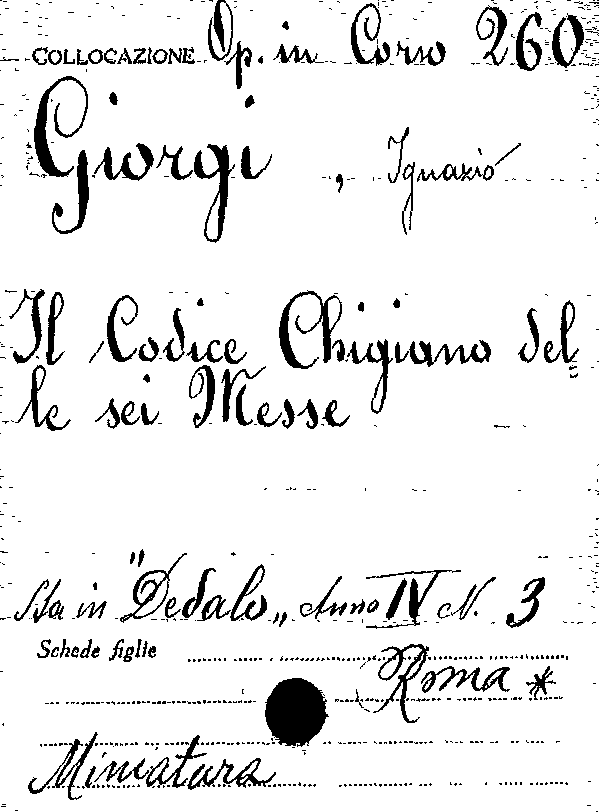 COLLOCAZIONE Op. in Corso 260
Giorgi, Ignazio
Il Codice Chigiano del=
le sei Messe
Sta in "Dedalo„ Anno IV N. 3
Schede figlie
Roma *
Miniatura